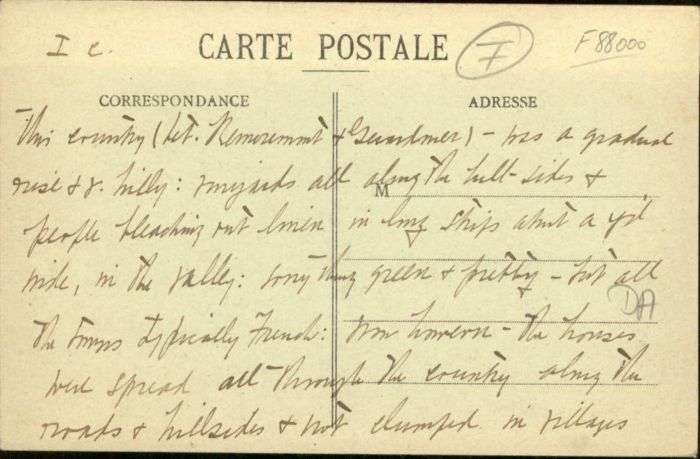 I c.
CARTE POSTALE
F
F 88000
CORRESPONDANCE
ADRESSE
This country (bet. Remiremont & Gerardmer) - was a gradual
rise & v. hilly: vineyards all along the hill-sides &
M
people bleaching out linen in long strips about a y'd
wide, in the valley: everything green & pretty - but all
DA
the towns typically French: now however - the houses
were spread all through the country along the
roads & hillsides & not clumped in villages